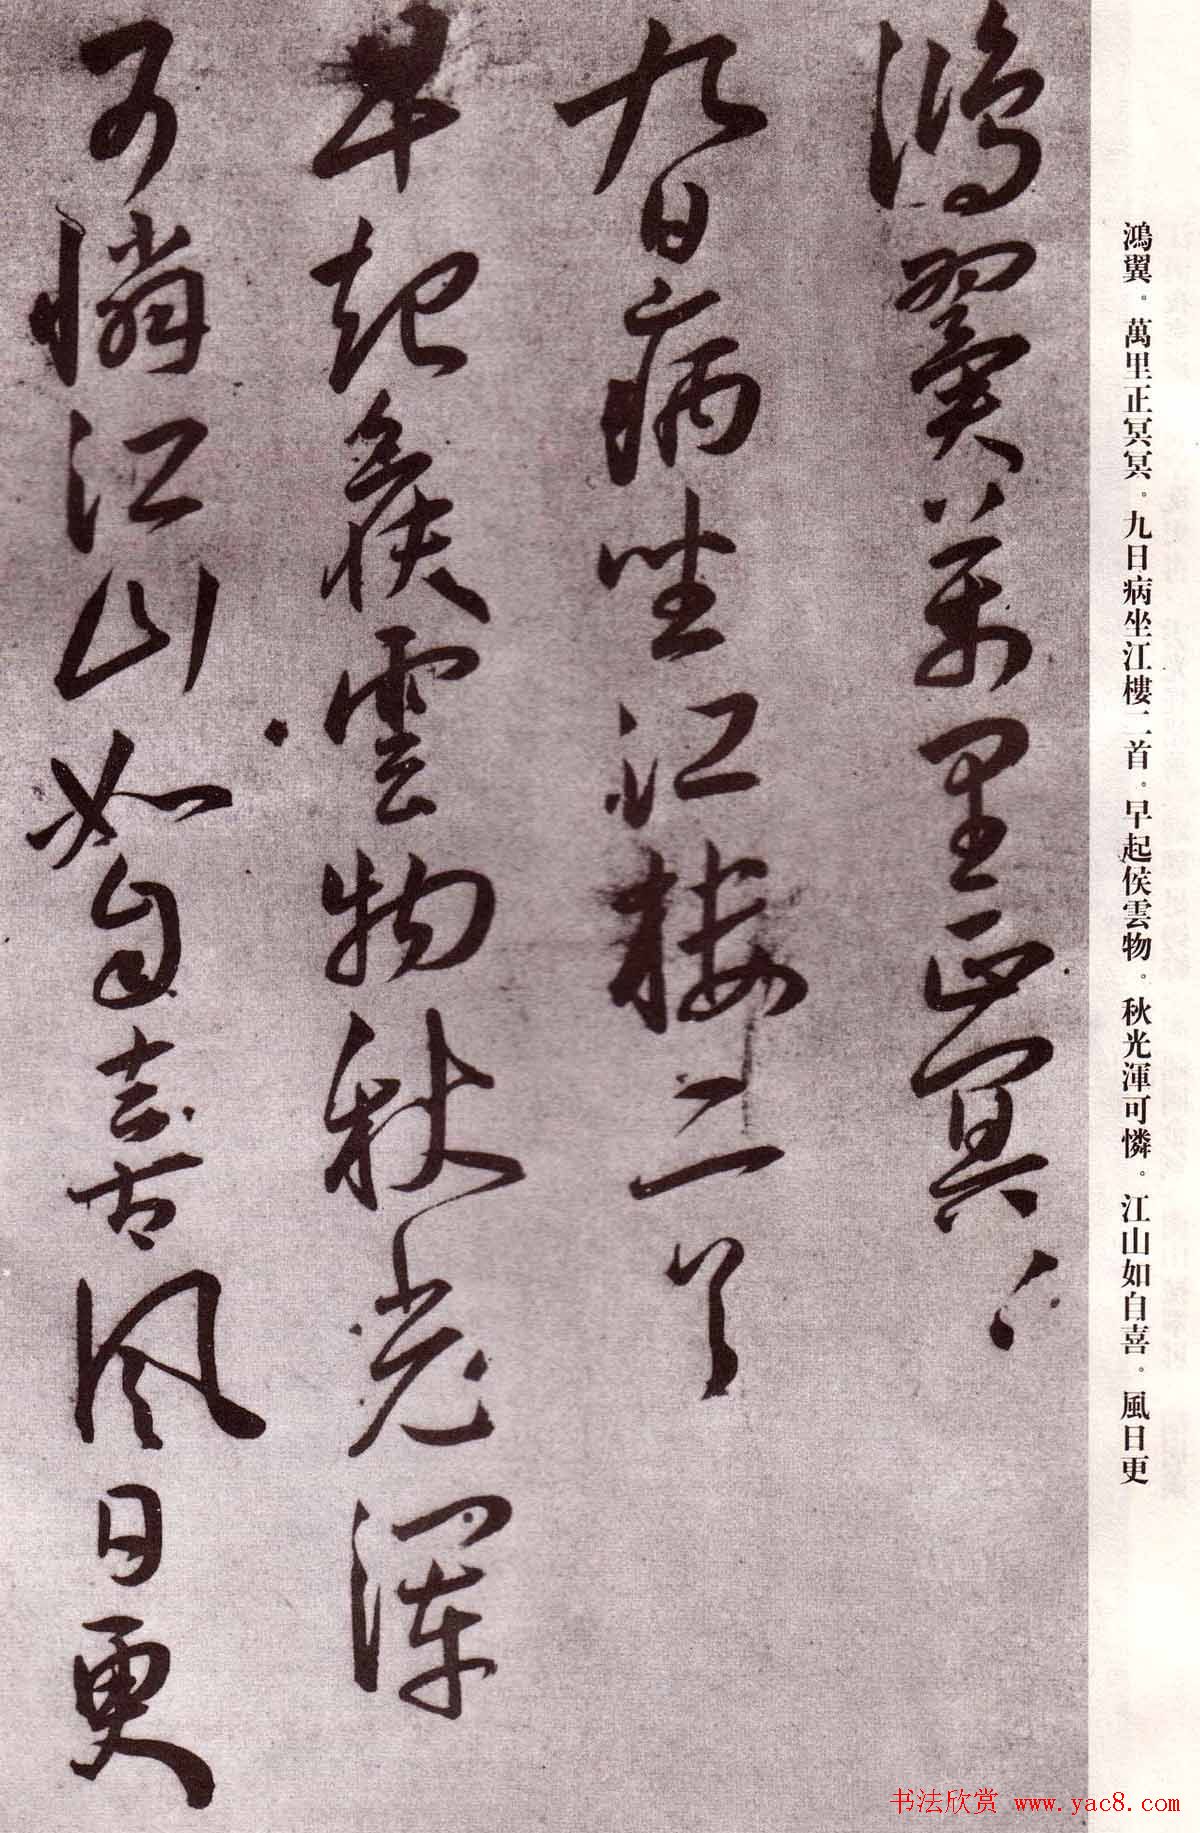 鴻翼。萬里正冥冥。九日病坐江樓二首。早起侯雲物。秋光渾可憐。江山如白喜。風日更
鴻翼萬里正冥〻
九日病坐江樓二首
早起候雲物秋光渾
可憐江山如自喜風日更
书法欣赏 www.yac8.com